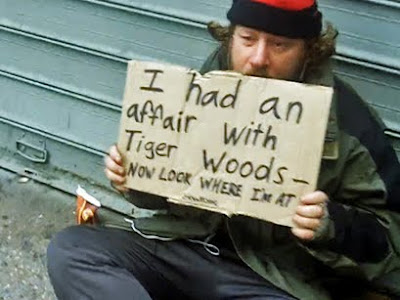 I had an
affair with
Tiger Woods—
NOW LOOK WHERE I'M AT